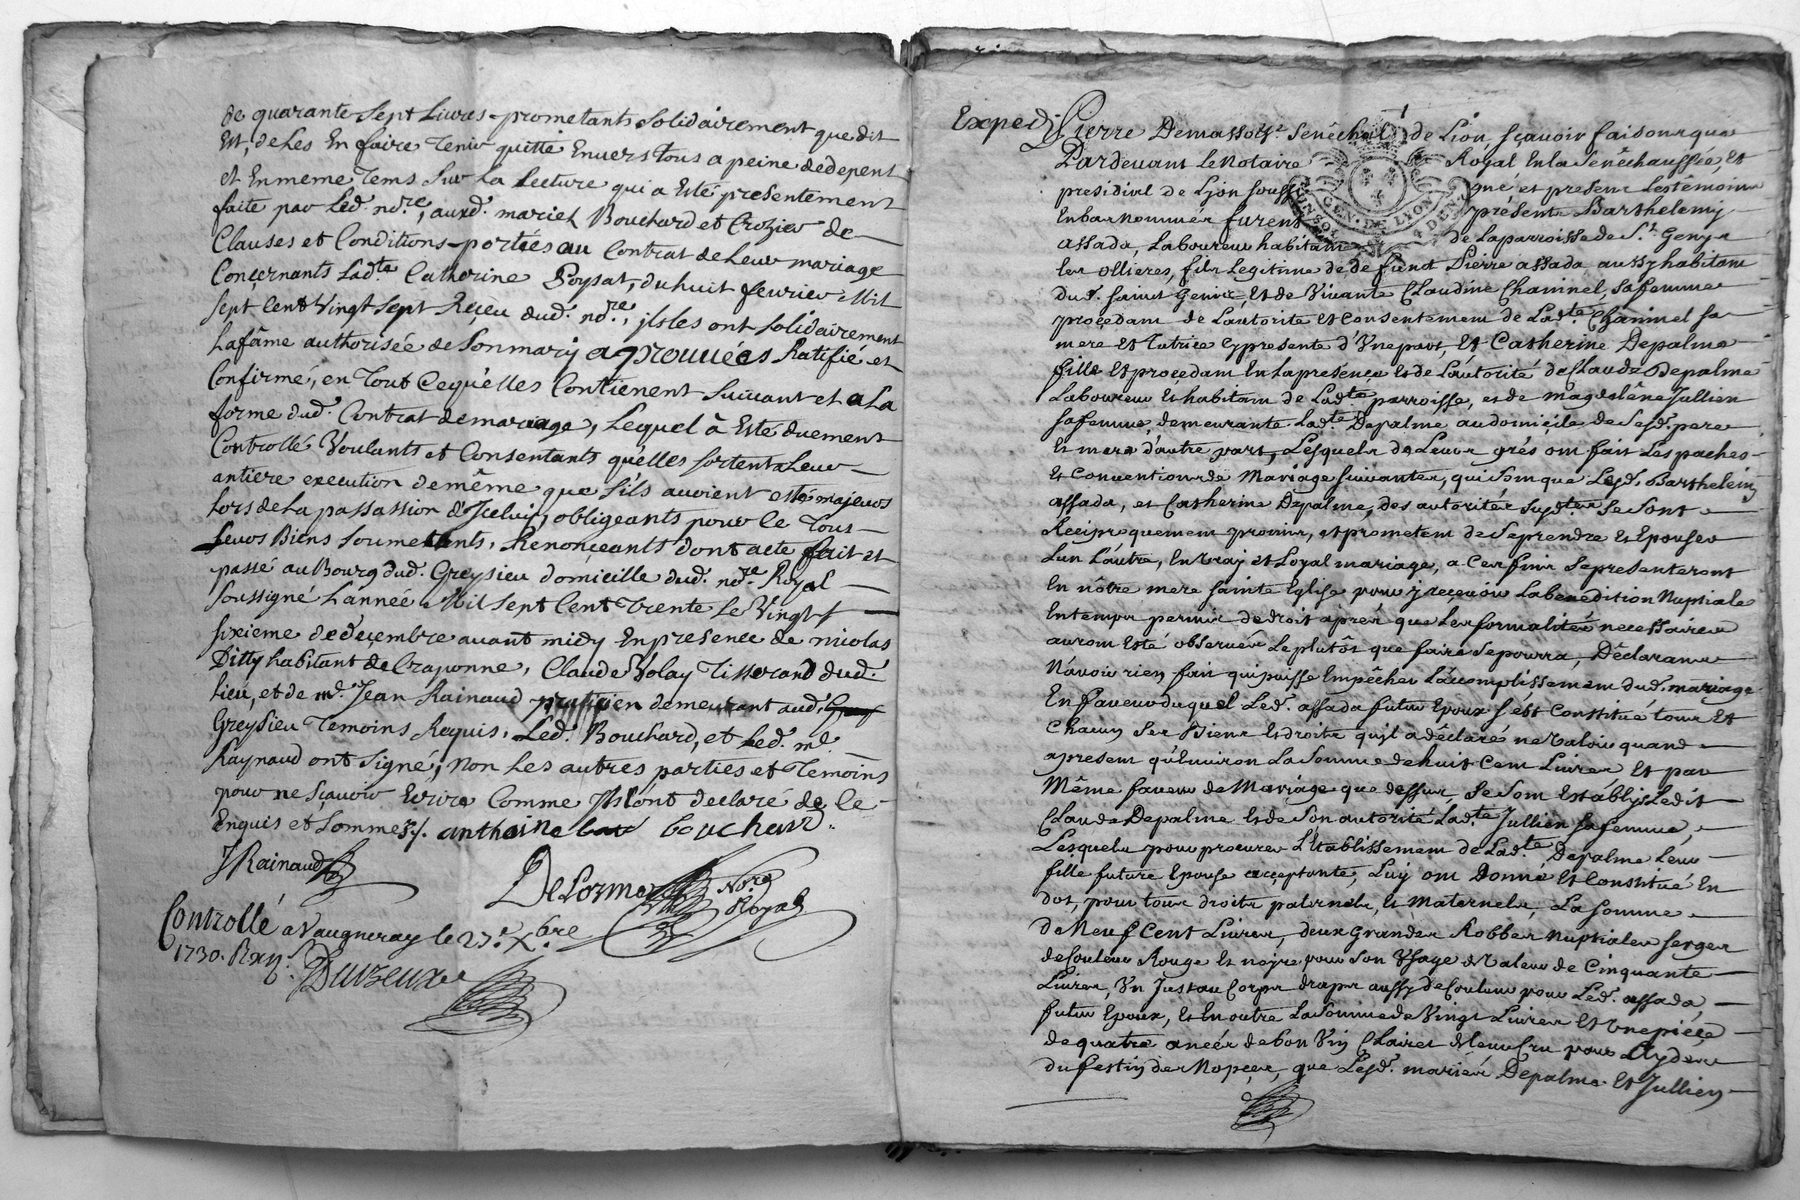 de quarante sept Livres prometants solidairement que dit
Est, de Les En faire Tenir quitte Envers tous a peine de depent
et En meme Tems Sur La Lecture qui a Esté presentement
faite par Led. no.re, auxd. mariez Bouchard et Crozier de
Clauses et Conditions portées au Contrat de Leur mariage
Conçernants Lad.te Catherine Poysat, du huit fevrier Mil
sept Cent Vingt sept Reçeu dud. no.re, jls les ont solidairement
La fâme authorisée de Son mary aprouuées Ratifié et
Confirmé, en Tout Ce qu'elles Contienent Suiuant et a La
forme dud. Contrat de mariage, Lequel à Esté duement
Controllé Voulants et Consentants qu'elles sortent Leur
antiere execution de même que S'ils auoient esté majeurs
Lors de La passassion d'Jceluy, obligeants pour le Tout
Leurs Biens soumettants, Renonçeants dont acte fait et
passé au Bourg dud. Greysieu domicille dud. no.re Royal
soussigné L'année Mil sept Cent Trente Le Vingt
sixieme de deçembre auant midy En presence de nicolas
Ditty habitant de Craponne, Claude Volay Tisserand dud.
lieu, et de m.e Jean Rainaud praticien demeurant aud.
Greysieu Temoins Requis, Led. Bouchard, et Led. m.e
Raynaud ont signé, non Les autres parties et Temoins
pour ne sçauoir Ecrire Comme Jls ont declaré de Ce
Enquis et sommez /. anthoine bouchard
J Rainaud
DeLorme No.re Royal
Controllé a Vaugneray le 27.e X.bre
1730. R xij s. Duvzeux
Expedi Pierre Demassoz.r Senéchal de Lion sçauoir faisons que
Pardevant Le Notaire Royal En la Sénêchaussée, Et
presidial de Lyon soussigné et present Les têmoins
En bas Nommés furent présents Barthelemy
assada, Laboureur habitant de La parroisse de S.t Genys
les ollieres, fils Legitime de defunct Pierre assada, aussy habitant
dud. saint Genis, Et de Viuante Claudine Chammel, sa femme
proçedant de L'autorité Et Consentement de Lad.te Chammel sa
mere Et Tutrice Cy presente d'Vne part, Et Catherine Depalme
fille Et proçedant En La presençe Et de L'autorité de Claude Depalme
Laboureur Et habitant de Lad.te parroisse, et de magdelêne Jullien
sa femme, demeurante Lad.te Depalme au domiçile de Sesd. pere
Et mere d'autre part, Lesquels de Leurs grés ont fait Les paches
Et Conventions de Mariage suiuantes, qui Sont que Lesd. Barthelemy
assada, et Catherine Depalme, des autorités susd.tes Se Sont
Réciproquement promis, et prometent de Se prendre Et Epouser
L'un L'autre, En vray et Loyal mariage, a Ces fins se presenteront
En nôtre mere sainte Eglise pour y recevoir La benediction Nuptiale
En temps permis de droit aprés que Les formalités necessaires
auront Esté observées Le plutôt que faire se pourra, Déclarants
N'avoir rien fait qui puisse Empêcher L'acomplissement dud. mariage
En faveur duquel Led. assada futur Epoux s'est Constitué tous Et
Chacuns Ses Biens Et droits qu'jl a déclaré ne Valoir quand
a present qu'Environ La Somme de huit Cent Livres Et par
Même faveur de Mariage que dessus Se Sont Establys Ledit
Claude Depalme Et de Son autorité Lad.te Jullien sa femme,
Lesquels pour procurer L'Etablissement de Lad.te Depalme Leur
fille future Epouse acçeptante, Luy ont Donné Et Constitué En
dot, pour tous droits paternels, Et Maternels, La Somme
De Neuf Cent Livres, deux grandes Robbes Nuptiales serges
de Couleur Rouge Et noire pour Son Vsage de Valeur de Cinquante
Livres, Vn Justau Corps draps aussy de Couleur pour Led. assada
futur Epoux, Et En outre La Somme de Vingt Livres Et Vne pièçe
de quatre anées de bon Vin Clairet de Leur Cru pour L'ayder
du festin des Nopçes, que Lesd. mariés Depalme Et Jullien